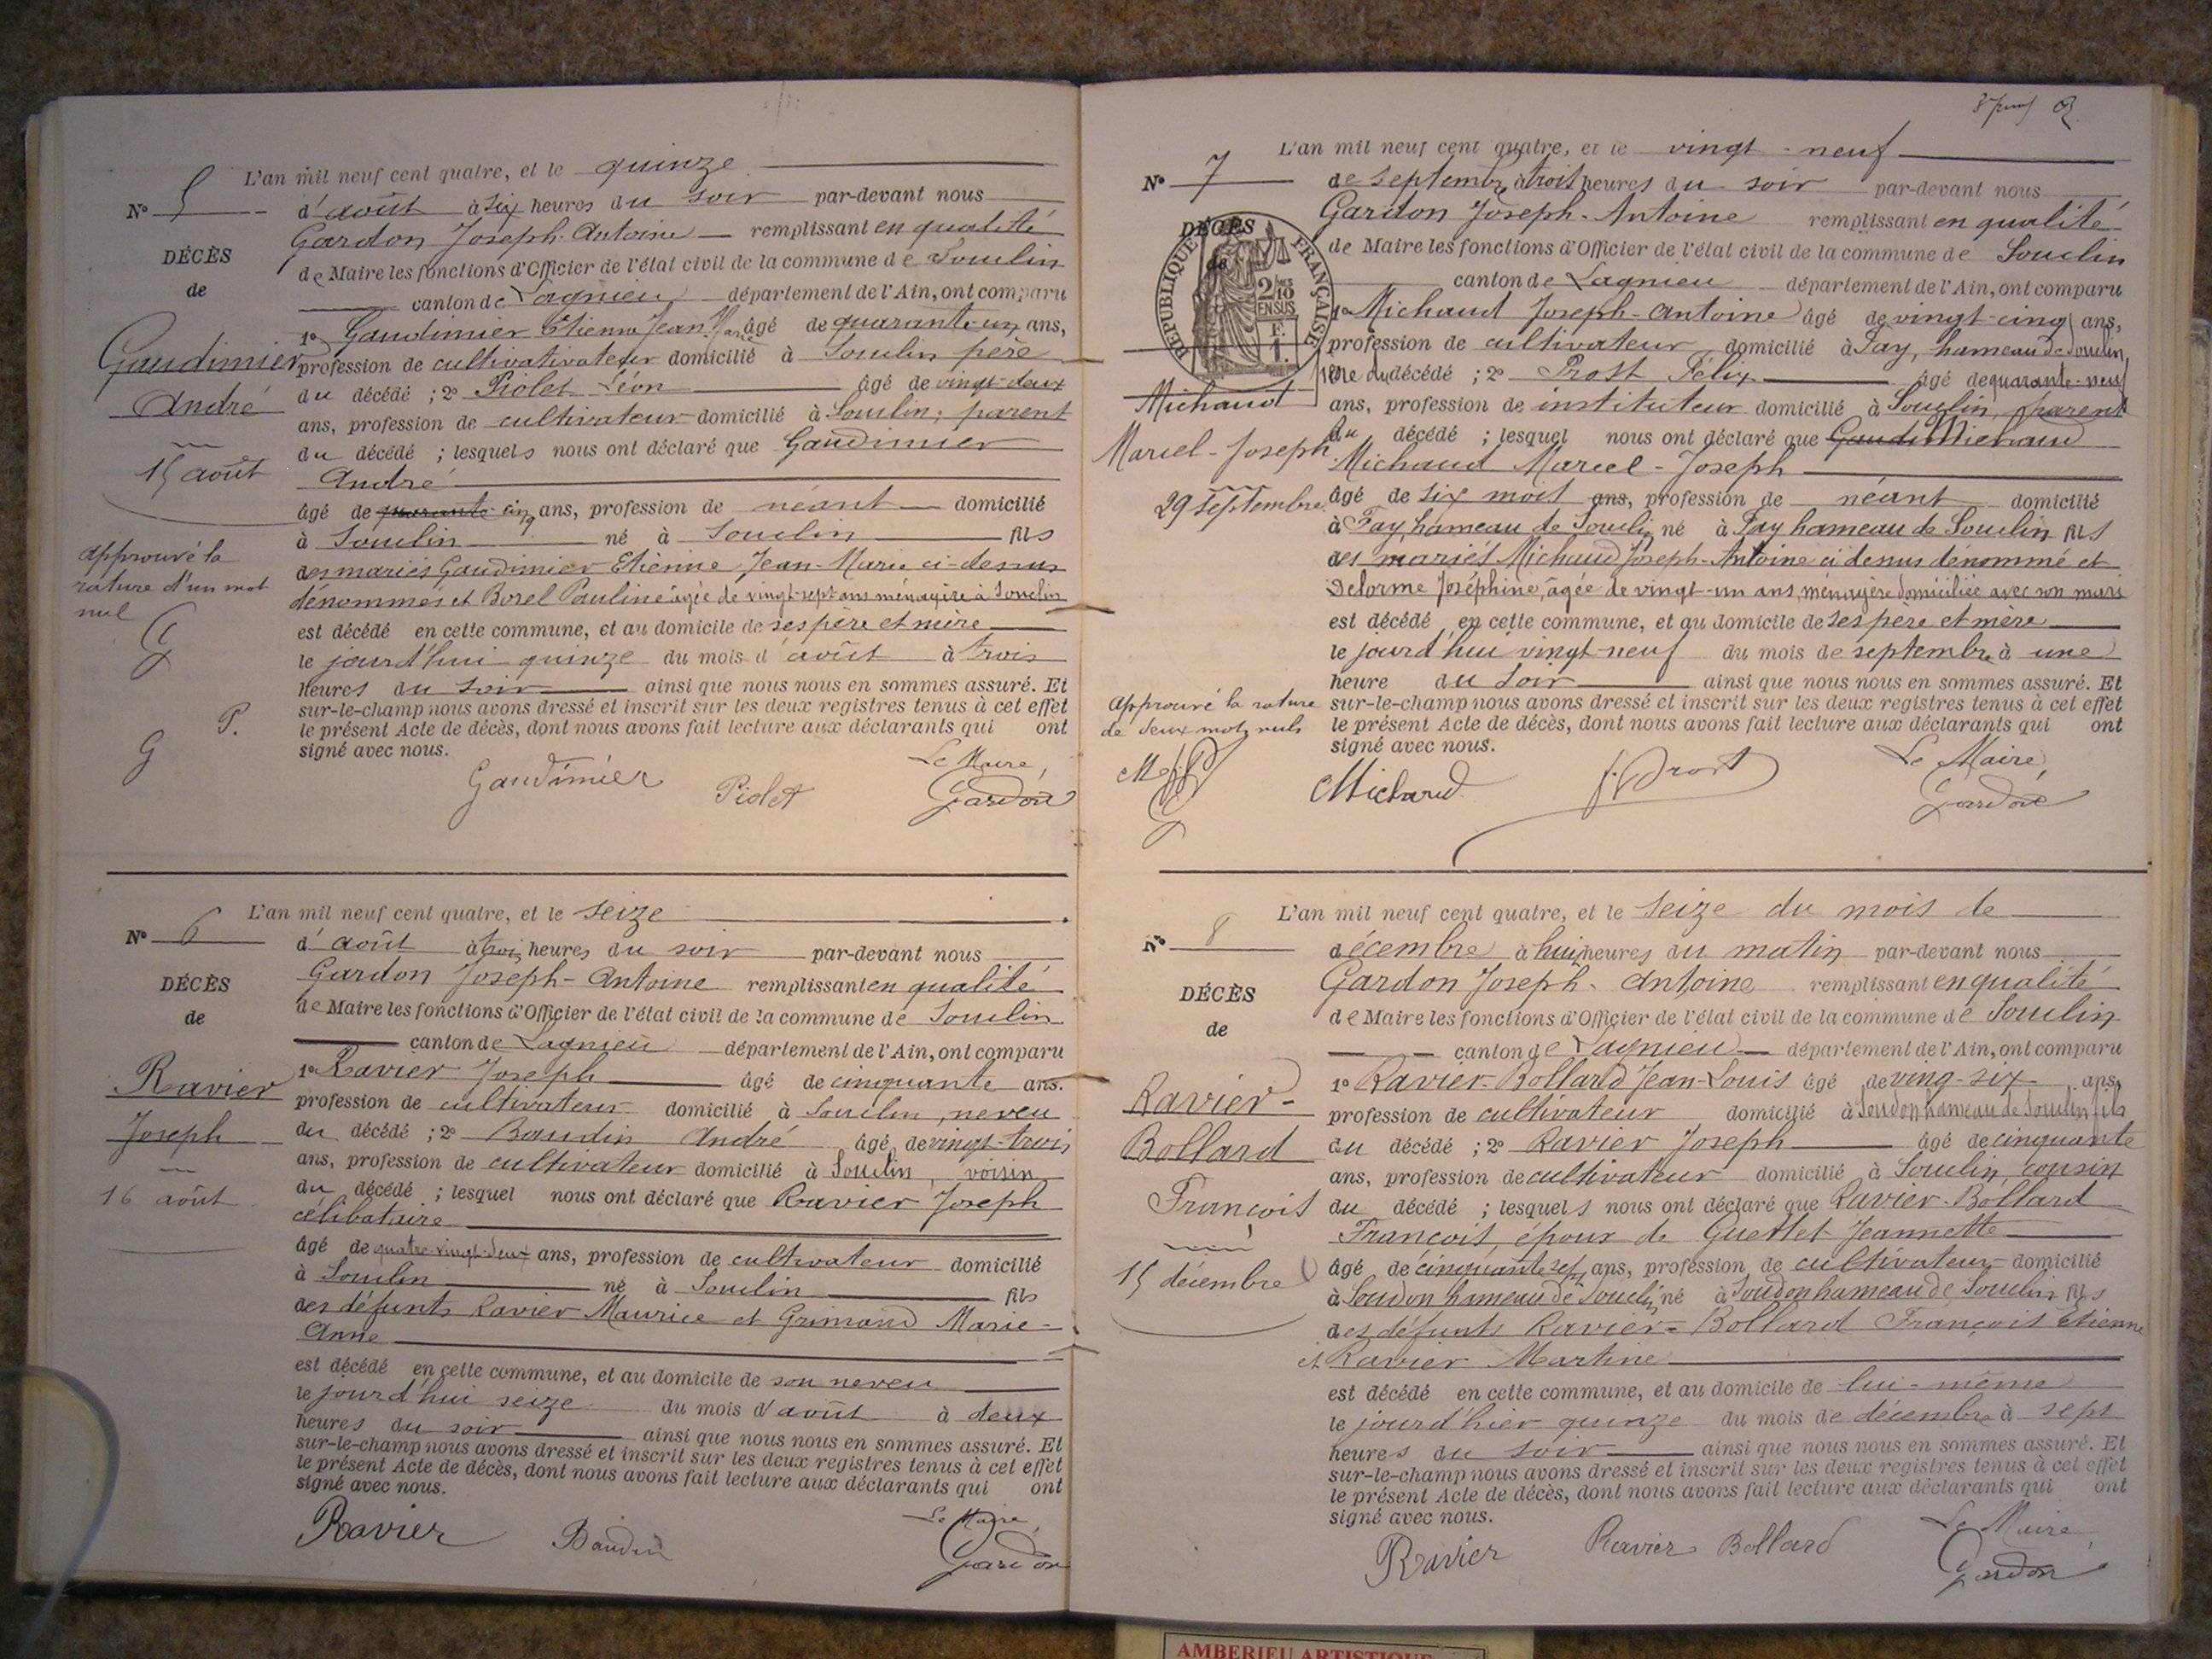 L'an mil neuf cent quatre, et le quinze
N° 5
d'août à six heures du soir par-devant nous
Gardon Joseph-Antoine remplissant en qualité
DÉCÈS
de Maire les fonctions d'Officier de l'état civil de la commune de Souclin
de
canton de Lagnieu département de l'Ain, ont comparu
1° Gaudimier Etienne Jean Marie âgé de quarante-un ans,
Gaudimier
profession de cultivativateur domicilié à Souclin père
du décédé ; 2° Piolet Léon âgé de vingt-deux
André
ans, profession de cultivateur domicilié à Souclin ; parent
du décédé ; lesquels nous ont déclaré que Gaudimier
15 août
André
âgé de quarante cinq ans, profession de néant domicilié
à Souclin né à Souclin fils
approuvé la
rature d'un mot
nul
des mariés Gaudimier Etienne Jean-Marie ci-dessus
dénommés et Borel Pauline âgée de vingt-sept ans ménagère à Souclin
est décédé en cette commune, et au domicile de ses père et mère
G
le jourd'hui quinze du mois d'août à trois
heures du soir ainsi que nous nous en sommes assuré. Et
sur-le-champ nous avons dressé et inscrit sur les deux registres tenus à cet effet
P.
le présent Acte de décès, dont nous avons fait lecture aux déclarants qui ont
G
signé avec nous.
Le Maire,
Gaudimier Piolet Gardon
L'an mil neuf cent quatre, et le seize
N° 6
d'août à trois heures du soir par-devant nous
Gardon Joseph-Antoine remplissant en qualité
DÉCÈS
de Maire les fonctions d'Officier de l'état civil de la commune de Souclin
de
canton de Lagnieu département de l'Ain, ont comparu
1° Ravier Joseph âgé de cinquante ans.
Ravier
profession de cultivateur domicilié à Souclin, neveu
du décédé ; 2° Baudin André âgé de vingt-trois
Joseph
ans, profession de cultivateur domicilié à Souclin, voisin
16 août
du décédé ; lesquel nous ont déclaré que Ravier Joseph
célibataire
âgé de quatre-vingt-deux ans, profession de cultivateur domicilié
à Souclin né à Souclin fils
des défunts Ravier Maurice et Grimand Marie-
Anne
est décédé en cette commune, et au domicile de son neveu
le jourd'hui seize du mois d'août à deux
heures du soir ainsi que nous nous en sommes assuré. Et
sur-le-champ nous avons dressé et inscrit sur les deux registres tenus à cet effet
le présent Acte de décès, dont nous avons fait lecture aux déclarants qui ont
signé avec nous.
Le Maire,
Ravier Baudin Gardon
L'an mil neuf cent quatre, et le vingt-neuf
N° 7
de septembre à trois heures du soir par-devant nous
DÉCÈS
de
Gardon Joseph-Antoine remplissant en qualité
RÉPUBLIQUE FRANÇAISE
2/10 EN SUS
de Maire les fonctions d'Officier de l'état civil de la commune de Souclin
canton de Lagnieu département de l'Ain, ont comparu
1° Michaud Joseph-Antoine âgé de vingt-cinq ans,
profession de cultivateur domicilié à Fay, hameau de Souclin,
père du décédé ; 2° Prost Félix âgé de quarante-neuf
Michaud
ans, profession de instituteur domicilié à Souclin, parent
Marcel-Joseph
du décédé ; lesquel nous ont déclaré que Gaudi Michaud
Michaud Marcel-Joseph
29 septembre
âgé de six mois ans, profession de néant domicilié
à Fay, hameau de Souclin né à Fay hameau de Souclin fils
des mariés Michaud Joseph-Antoine ci dessus dénommé et
Delorme Joséphine, âgée de vingt-un ans, ménagère domiciliée avec son mari
est décédé en cette commune, et au domicile de ses père et mère
le jourd'hui vingt-neuf du mois de septembre à une
heure du soir ainsi que nous nous en sommes assuré. Et
approuvé la rature
de deux mots nuls
sur-le-champ nous avons dressé et inscrit sur les deux registres tenus à cet effet
le présent Acte de décès, dont nous avons fait lecture aux déclarants qui ont
signé avec nous.
Le Maire,
Michaud F. Prost Gardon
L'an mil neuf cent quatre, et le seize du mois de
N° 8
décembre à huit heures du matin par-devant nous
Gardon Joseph-Antoine remplissant en qualité
DÉCÈS
de Maire les fonctions d'Officier de l'état civil de la commune de Souclin
de
canton de Lagnieu département de l'Ain, ont comparu
1° Ravier-Bollard Jean-Louis âgé de ving-six ans,
Ravier-
profession de cultivateur domicilié à Soudon hameau de Souclin fils
Bollard
du décédé ; 2° Ravier Joseph âgé de cinquante
ans, profession de cultivateur domicilié à Souclin, cousin
François
du décédé ; lesquels nous ont déclaré que Ravier-Bollard
François, époux de Guettet Jeannette
15 décembre
âgé de cinquante sept ans, profession de cultivateur domicilié
à Soudon hameau de Souclin né à Soudon hameau de Souclin fils
des défunts Ravier-Bollard François Etienne
et Ravier Martine
est décédé en cette commune, et au domicile de lui-même
le jourd'hier quinze du mois de décembre à sept
heures du soir ainsi que nous nous en sommes assuré. Et
sur-le-champ nous avons dressé et inscrit sur les deux registres tenus à cet effet
le présent Acte de décès, dont nous avons fait lecture aux déclarants qui ont
signé avec nous.
Le Maire
Ravier Ravier Bollard Gardon
AMBERIEU ARTISTIQUE